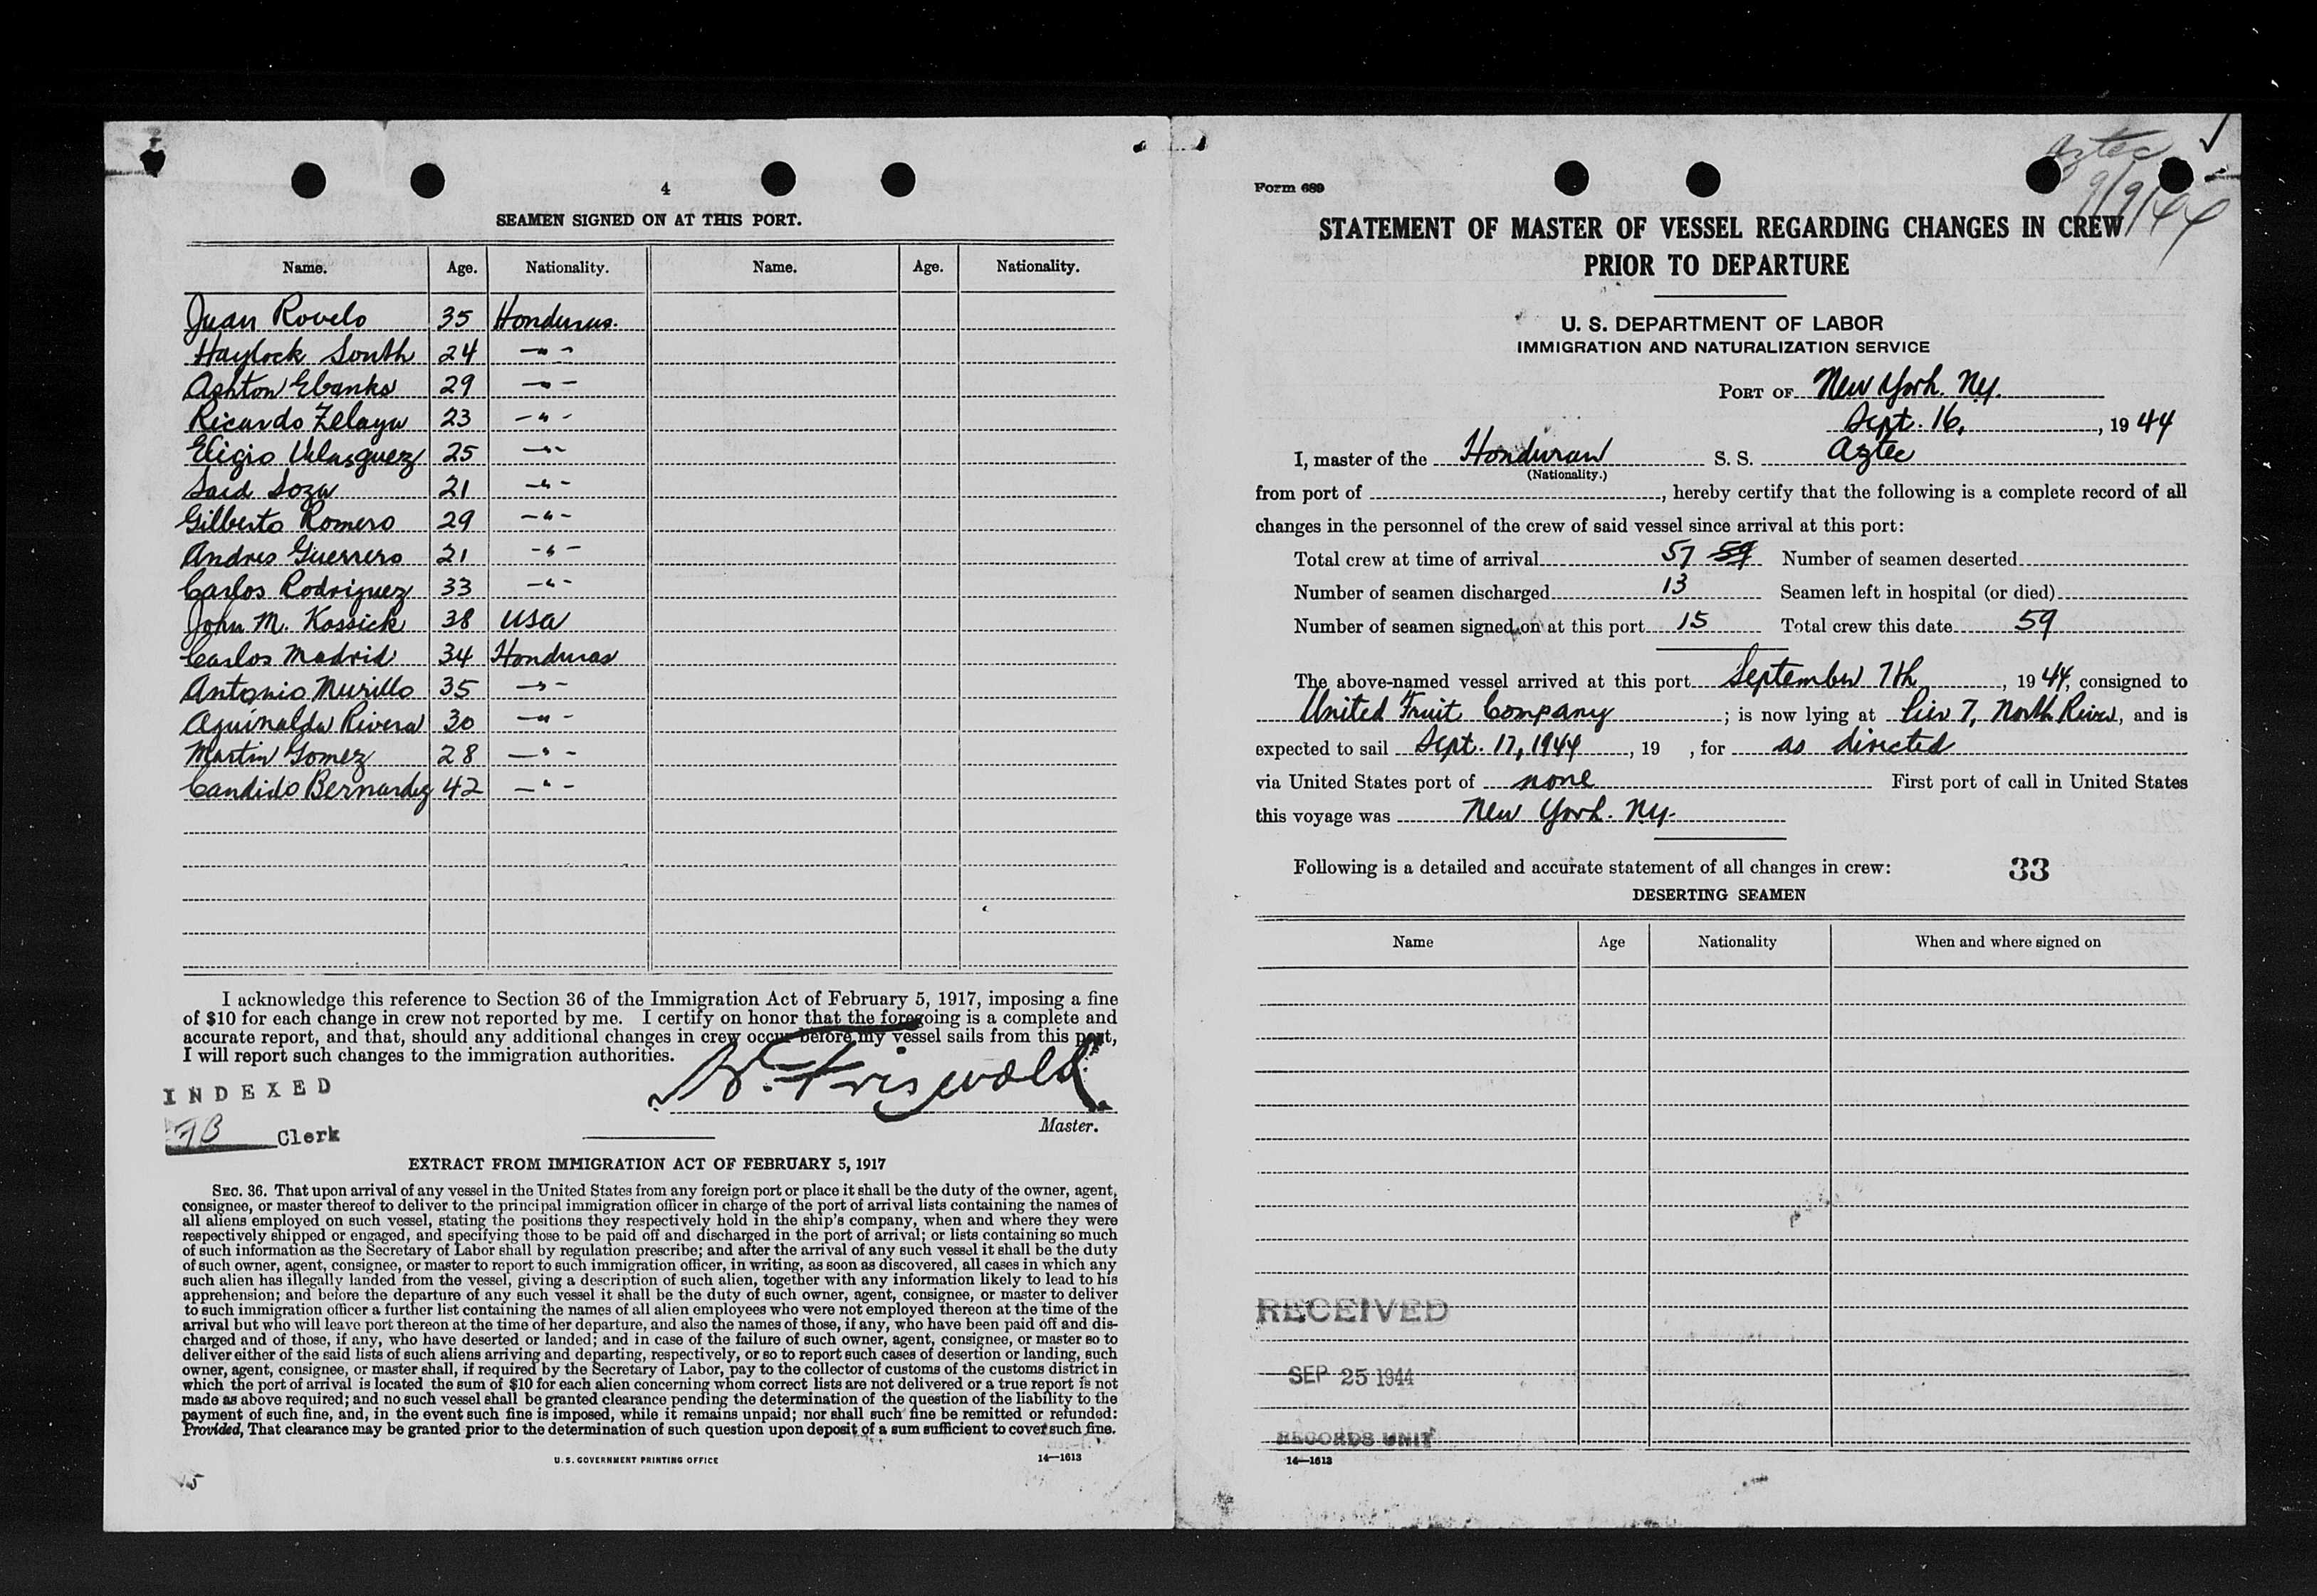 4
SEAMEN SIGNED ON AT THIS PORT.
Name. Age. Nationality. Name. Age. Nationality.
Juan Rovelo 35 Honduras.
Haylock South 24 -"-
Ashton Ebanks 29 -"-
Ricardo Zelaya 23 -"-
Eligio Velasquez 25 -"-
Said Soza 21 -"-
Gilberto Romero 29 -"-
Andres Guerrero 21 -"-
Carlos Rodriguez 33 -"-
John M. Kossick 38 USA
Carlos Madrid 34 Honduras
Antonio Murillo 35 -"-
Aguinaldo Rivera 30 -"-
Martin Gomez 28 -"-
Candido Bernardez 42 -"-
I acknowledge this reference to Section 36 of the Immigration Act of February 5, 1917, imposing a fine
of $10 for each change in crew not reported by me. I certify on honor that the foregoing is a complete and
accurate report, and that, should any additional changes in crew occur before my vessel sails from this port,
I will report such changes to the immigration authorities.
INDEXED
Clerk
Master.
EXTRACT FROM IMMIGRATION ACT OF FEBRUARY 5, 1917
SEC. 36. That upon arrival of any vessel in the United States from any foreign port or place it shall be the duty of the owner, agent,
consignee, or master thereof to deliver to the principal immigration officer in charge of the port of arrival lists containing the names of
all aliens employed on such vessel, stating the positions they respectively hold in the ship's company, when and where they were
respectively shipped or engaged, and specifying those to be paid off and discharged in the port of arrival; or lists containing so much
of such information as the Secretary of Labor shall by regulation prescribe; and after the arrival of any such vessel it shall be the duty
of such owner, agent, consignee, or master to report to such immigration officer, in writing, as soon as discovered, all cases in which any
such alien has illegally landed from the vessel, giving a description of such alien, together with any information likely to lead to his
apprehension; and before the departure of any such vessel it shall be the duty of such owner, agent, consignee, or master to deliver
to such immigration officer a further list containing the names of all alien employees who were not employed thereon at the time of the
arrival but who will leave port thereon at the time of her departure, and also the names of those, if any, who have been paid off and dis-
charged and of those, if any, who have deserted or landed; and in case of the failure of such owner, agent, consignee, or master so to
deliver either of the said lists of such aliens arriving and departing, respectively, or so to report such cases of desertion or landing, such
owner, agent, consignee, or master shall, if required by the Secretary of Labor, pay to the collector of customs of the customs district in
which the port of arrival is located the sum of $10 for each alien concerning whom correct lists are not delivered or a true report is not
made as above required; and no such vessel shall be granted clearance pending the determination of the question of the liability to the
payment of such fine, and, in the event such fine is imposed, while it remains unpaid; nor shall such fine be remitted or refunded:
Provided, That clearance may be granted prior to the determination of such question upon deposit of a sum sufficient to cover such fine.
U. S. GOVERNMENT PRINTING OFFICE 14—1613
Aztec
9/9/44
Form 689
STATEMENT OF MASTER OF VESSEL REGARDING CHANGES IN CREW
PRIOR TO DEPARTURE
U. S. DEPARTMENT OF LABOR
IMMIGRATION AND NATURALIZATION SERVICE
PORT OF New York. Ny.
Sept. 16, , 19 44
I, master of the Honduran S. S. Aztec
(Nationality.)
from port of , hereby certify that the following is a complete record of all
changes in the personnel of the crew of said vessel since arrival at this port:
Total crew at time of arrival 57 59 Number of seamen deserted
Number of seamen discharged 13 Seamen left in hospital (or died)
Number of seamen signed on at this port 15 Total crew this date 59
The above-named vessel arrived at this port September 7th , 19 44, consigned to
United Fruit Company ; is now lying at Pier 7, North River, and is
expected to sail Sept. 17, 1944 , 19 , for as directed
via United States port of none First port of call in United States
this voyage was New York. Ny.
Following is a detailed and accurate statement of all changes in crew: 33
DESERTING SEAMEN
Name Age Nationality When and where signed on
RECEIVED
SEP 25 1944
RECORDS UNIT
14—1613